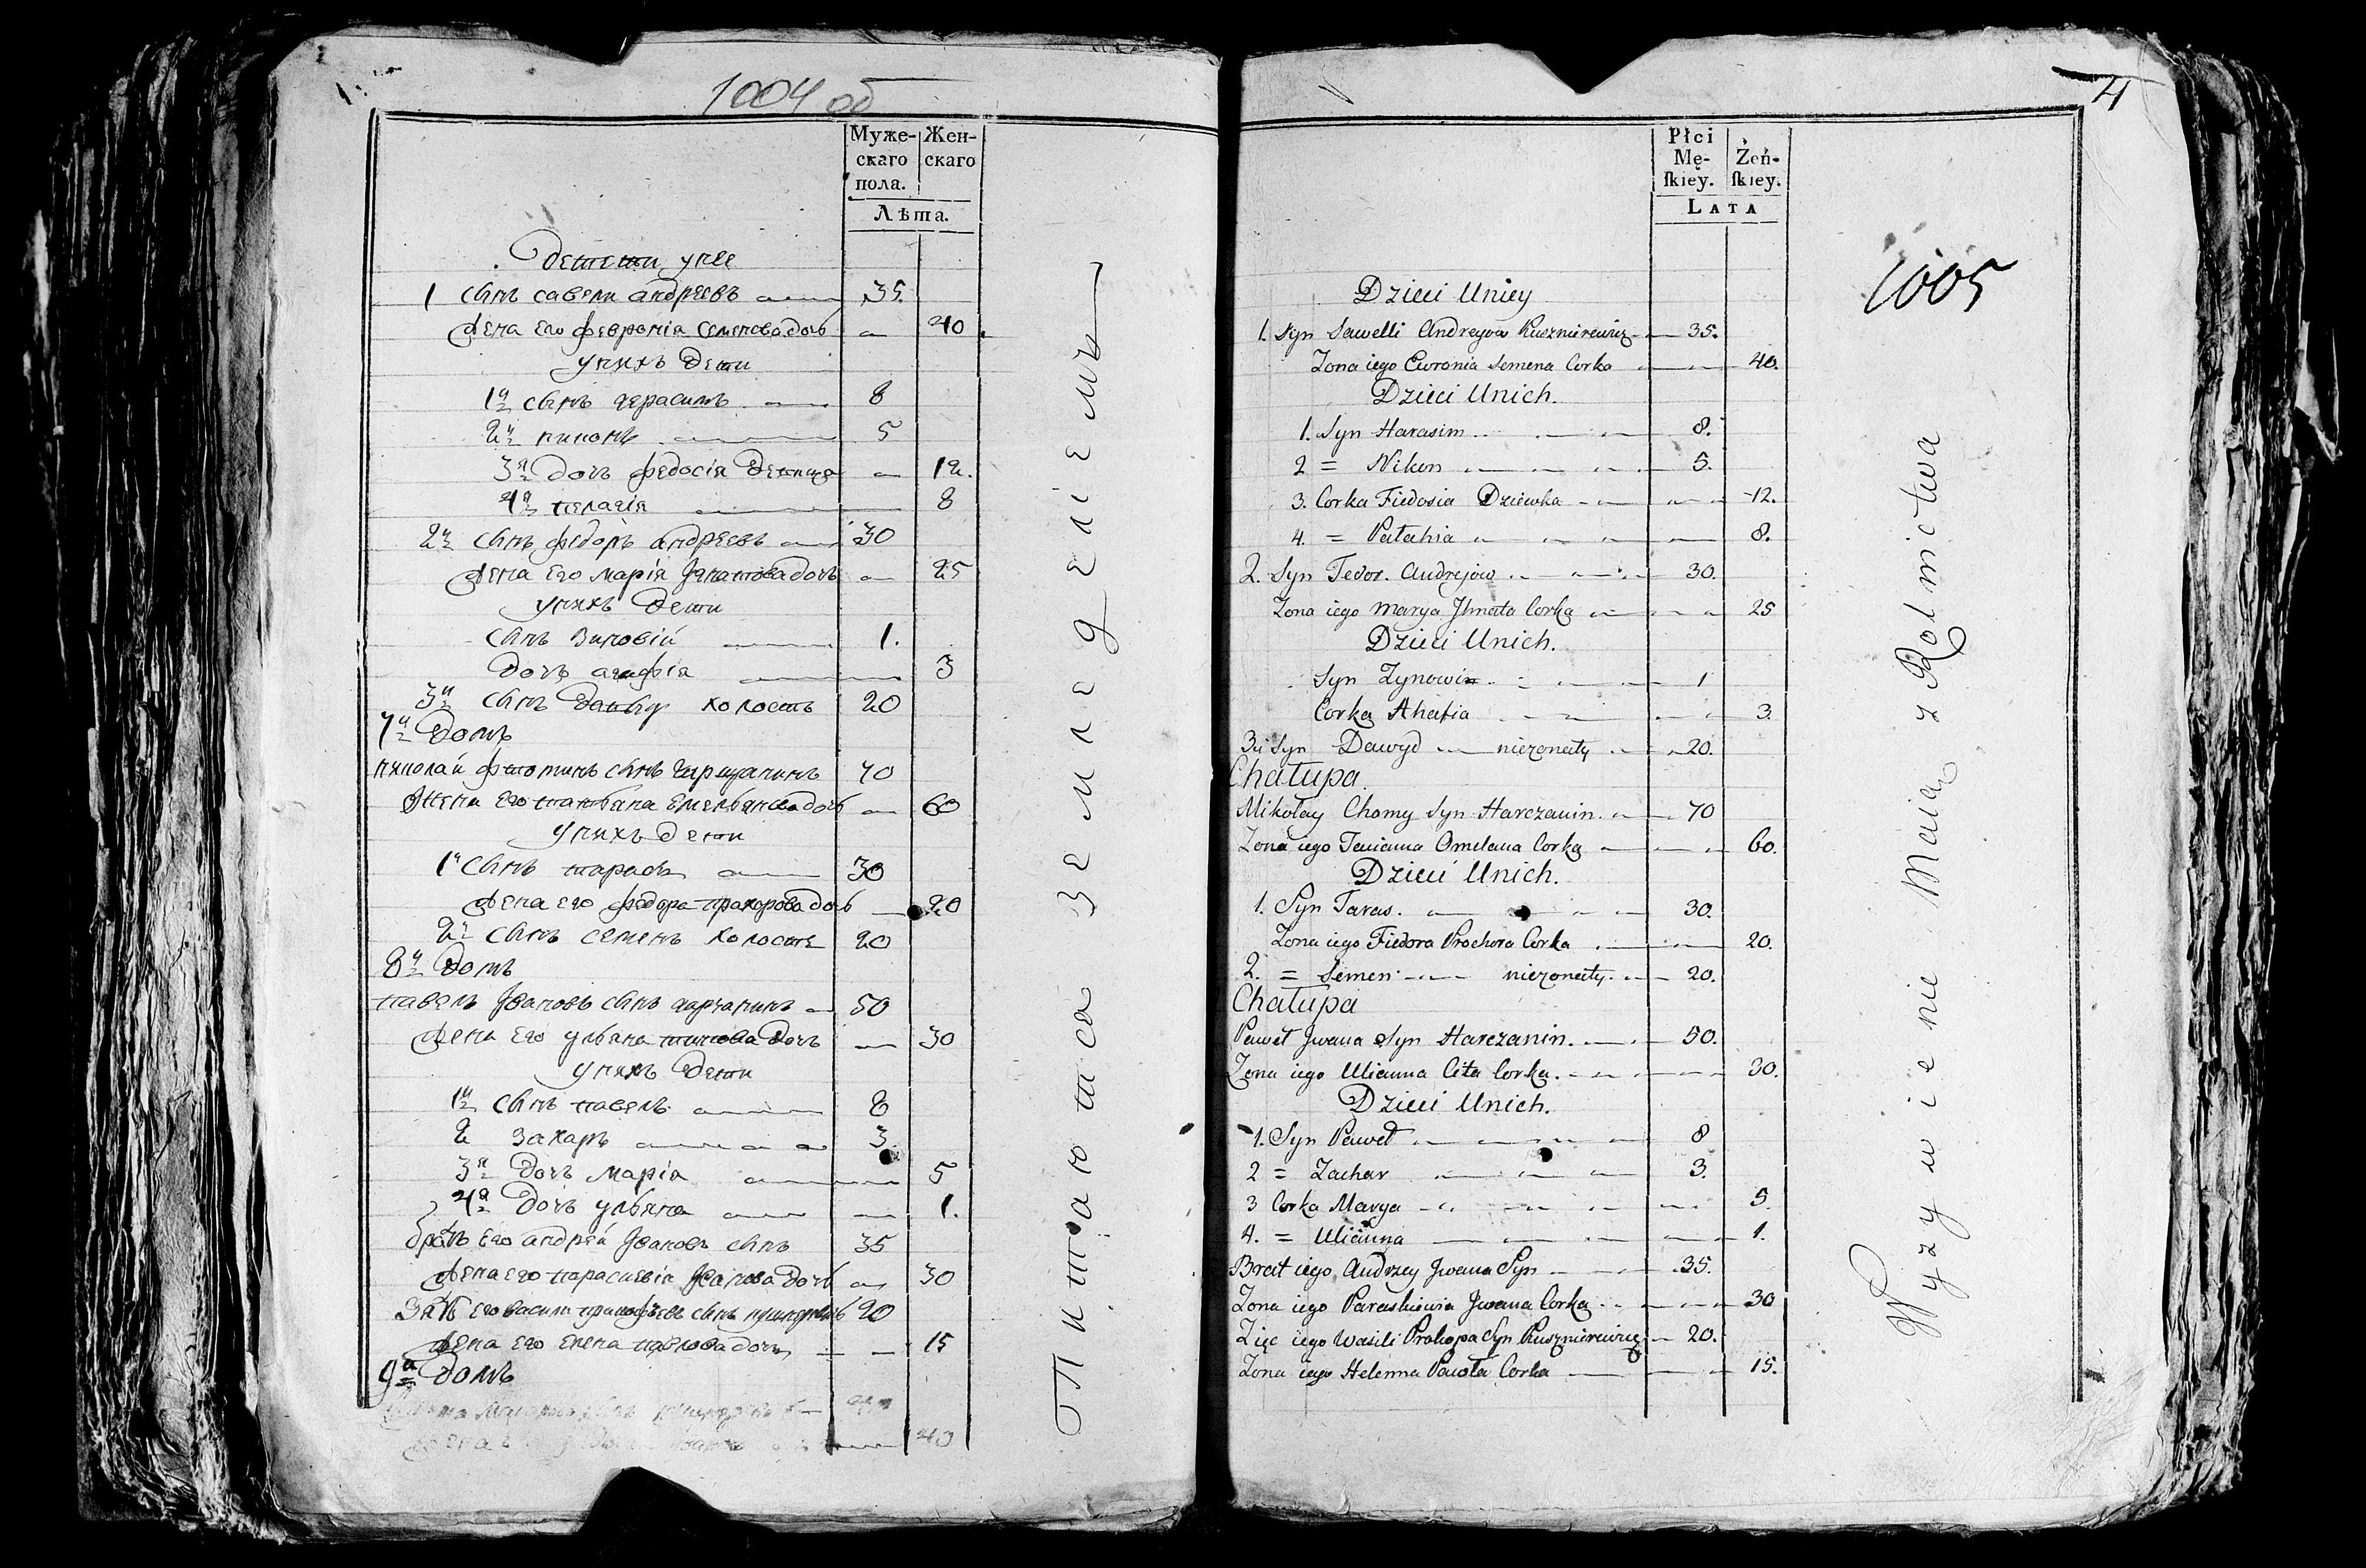 1004 об
Муже-
скаго
пола.
Жен-
скаго
Лѣта.
Дети унее
1 сынъ савели андреевъ 35.
жена его феврониа семенова дочь 40.
унихъ дети
1й сынъ герасимъ 8
2й никонъ 5
3я дочь федосіа девица 12.
4я пелагіа 8
2й сынъ федоръ андреевъ 30
жена его маріа Jгнатова дочь 25
унихъ дети
сынъ зиновій 1.
дочь агафіа 3
3й сынъ давыд холостъ 20
7й Домъ
николай фотинъ сынъ гарчанинъ 70
жена его татьяна емельянова дочь 60
унихъ дети
1й сынъ тарасъ 30
жена его федора прохорова дочь 20
2й сынъ семенъ холостъ 20
8й Домъ
павелъ Jвановъ сынъ гарчанинъ 50
жена его ульяна титова дочь 30
унихъ дети
1й сынъ павелъ 8
2 захаръ 3.
3я дочь маріа 5
4я дочь ульяна 1.
братъ его андрей Jвановъ сынъ 35
жена его парасковіа Jванова дочь 30
зять его васили прокофьевъ сынъ 20
жена его елена павлова дочь 15
9й Домъ
40
Питаютса земледеліемъ
4
1005
Płci
Mę-
ſkiey.
Żeń-
ſkiey.
LATA
Dzieci Uniey
1. Syn Sawelli Andreyva Kuszmirewicz 35.
Zona iego Ewronia Semena Corka 40.
Dzieci Unich.
1. Syn Harasim 8.
2 = Nikon 5.
3. Corka Fiedosia Dziewka 12.
4. = Pałahia 8.
2. Syn Fedor. Andrejow 30.
Zona iego Marya Jhnata Corka 25
Dzieci Unich.
Syn Zynowin 1
Corka Ahafia 3.
3ci Syn Dawyd niezonaty 20.
Chałupa.
Mikołay Chomy Syn Harczanin. 70
Zona iego Tacianna Omelana Corka 60.
Dzieci Unich.
1. Syn Taras. 30.
Zona iego Fiedora Prochora Corka 20.
2. = Semen niezonaty. 20.
Chałupa
Paweł Jwana Syn Harczanin. 50.
Zona iego Ulianna Cita Corka. 30.
Dzieci Unich.
1. Syn Paweł 8
2 = Zachar 3.
3 Corka Marya 5.
4. = Ulianna 1.
Brat iego Andrzey Jwana Syn 35.
Zona iego Paraskiewia Jwana Corka 30
Zięc iego Wasili Prokopa Syn Kuszmirewicz 20.
Zona iego Helenna Pawła Corka 15.
Wyzywienie Maią z Rolnictwa